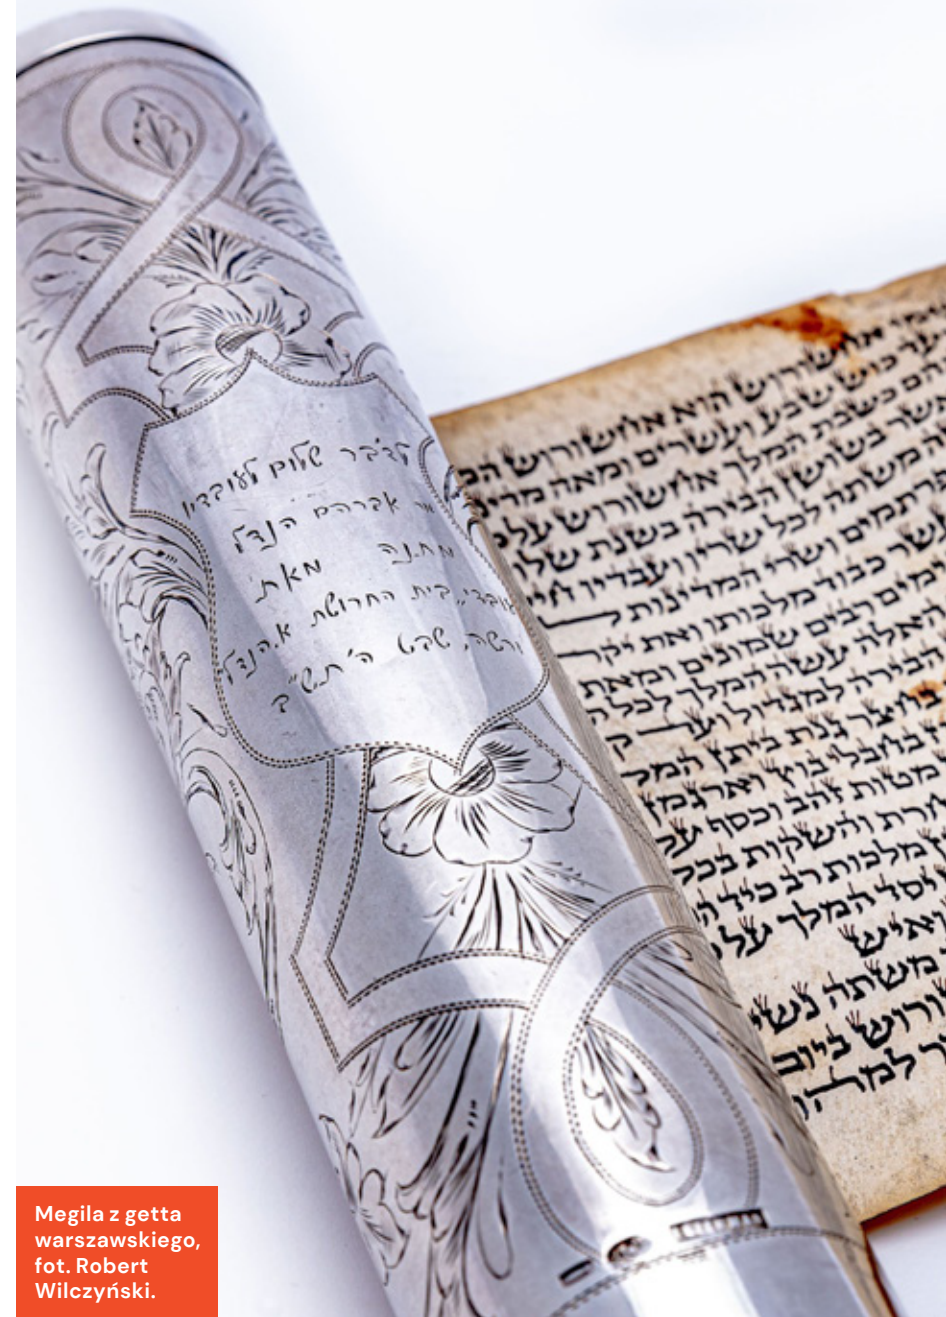 לדבר שלום לעובדיו
מר אברהם הנדל
מתנה מאת
עובדי "בית החרושת א. הנדל
ורשה, שבט ה'תש"ב
אחשורוש הוא אחשורוש
כוש שבע ועשרים ומאה
כשבת המלך אחשורוש על
אשר בשושן הבירה בשנת
משתה לכל שריו ועבדיו
ושרי המדינות
כבוד מלכותו ואת יקר
ימים רבים שמונים ומאת
האלה עשה המלך לכל
הבירה למגדול ועד
בחצר גנת ביתן
בחבלי בוץ וארגמן
מטות זהב וכסף על
והשקות בכל
מלכות רב כיד
יסד המלך על
ואיש
משתה
ביום
Megila z getta
warszawskiego,
fot. Robert
Wilczyński.